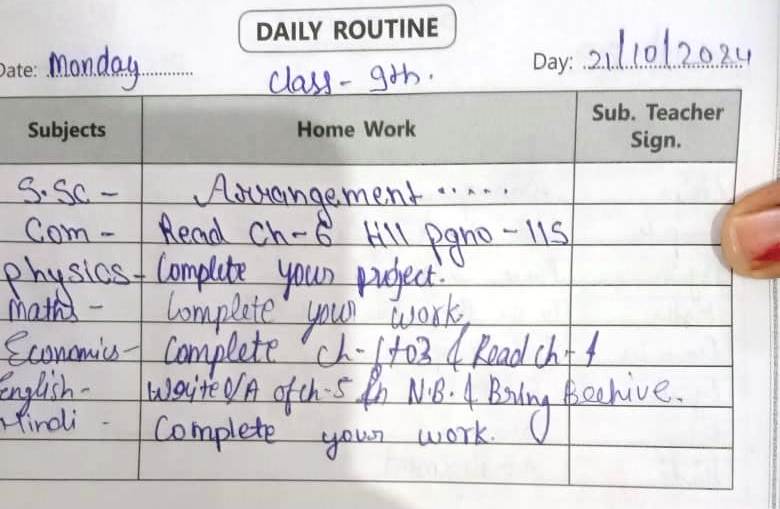 DAILY ROUTINE
Date: Monday Day: 21/10/2024
Class - 9th.
Subjects Home Work Sub. Teacher Sign.
S.Sc - Arrangement .....
Com - Read Ch-6 till pgno - 115
physics - Complete your project.
Maths - Complete your work,
Economics - Complete ch-1 to 3 & Read ch-4
English - Write Q/A of ch-5 in N.B. & Bring Beehive.
Hindi - Complete your work.